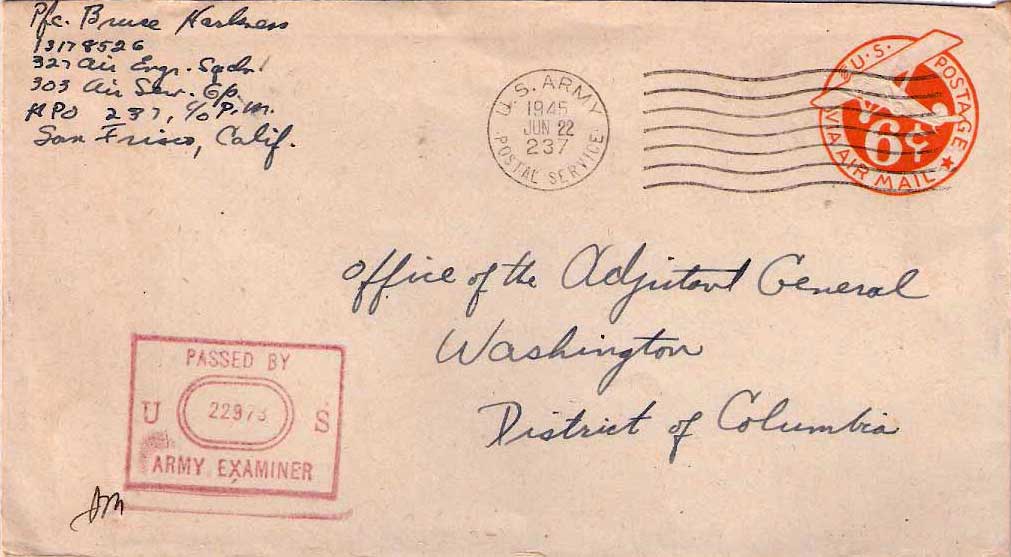 Pfc. Bruce Harkness
13178526
327 Air Engr. Sqdn.
303 Air Serv. Gp.
APO 237, c/o P.M.
San Frisco, Calif.
U.S. ARMY
1945
JUN 22
237
POSTAL SERVICE
U.S. POSTAGE
6¢
VIA AIR MAIL
Office of the Adjutant General
Washington
District of Columbia
PASSED BY
U 22973 S
ARMY EXAMINER